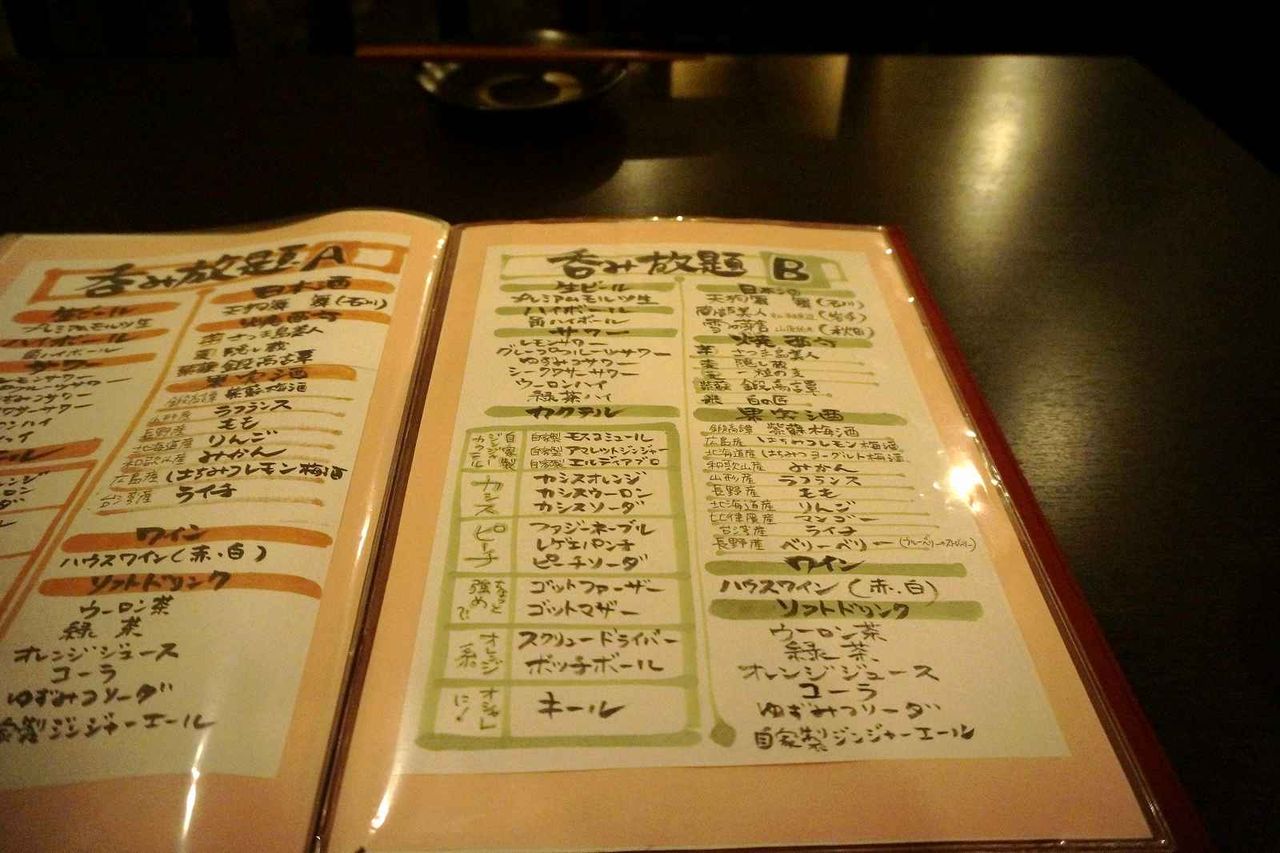 呑み放題 A
生ビール
プレミアムモルツ生
ハイボール
角ハイボール
サワー
日本酒
天狗舞 舞(石川)
焼酎
さつま島美人
麦 隠し蔵
紫蘇 鍛高譚
果実酒
鍛高譚 紫蘇梅酒
山形産 ラフランス
長野産 もも
北海道産 りんご
和歌山産 みかん
広島産 はちみつレモン梅酒
台湾産 ライチ
ワイン
ハウスワイン(赤、白)
ソフトドリンク
ウーロン茶
緑茶
オレンジジュース
コーラ
ゆずみつソーダ
自家製ジンジャーエール
呑み放題 B
生ビール
プレミアムモルツ生
ハイボール
角ハイボール
サワー
レモンサワー
グレープフルーツサワー
ゆずみつサワー
シークワサーサワー
ウーロンハイ
緑茶ハイ
カクテル
自家製ジンジャーカクテル
自家製 モスコミュール
自家製 アマレットジンジャー
自家製 エルディアブロ
カシス
カシスオレンジ
カシスウーロン
カシスソーダ
ピーチ
ファジーネーブル
レゲエパンチ
ピーチソーダ
ちょっと強めで
ゴットファーザー
ゴットマザー
オレンジ系
スクリュードライバー
ボッチボール
オシャレに!
キール
日本酒
天狗舞 舞(石川)
南部美人 (岩手)
雪の茅舎 山廃純米 (秋田)
焼酎
芋 さつま島美人
麦 隠し蔵
麦 一粒の麦
紫蘇 鍛高譚
米 白の匠
果実酒
鍛高譚 紫蘇梅酒
広島産 はちみつレモン梅酒
北海道産 はちみつヨーグルト梅酒
和歌山産 みかん
山形産 ラフランス
長野産 もも
北海道産 りんご
比律賓産 マンゴー
台湾産 ライチ
長野産 ベリーベリー
ワイン
ハウスワイン(赤、白)
ソフトドリンク
ウーロン茶
緑茶
オレンジジュース
コーラ
ゆずみつソーダ
自家製ジンジャーエール